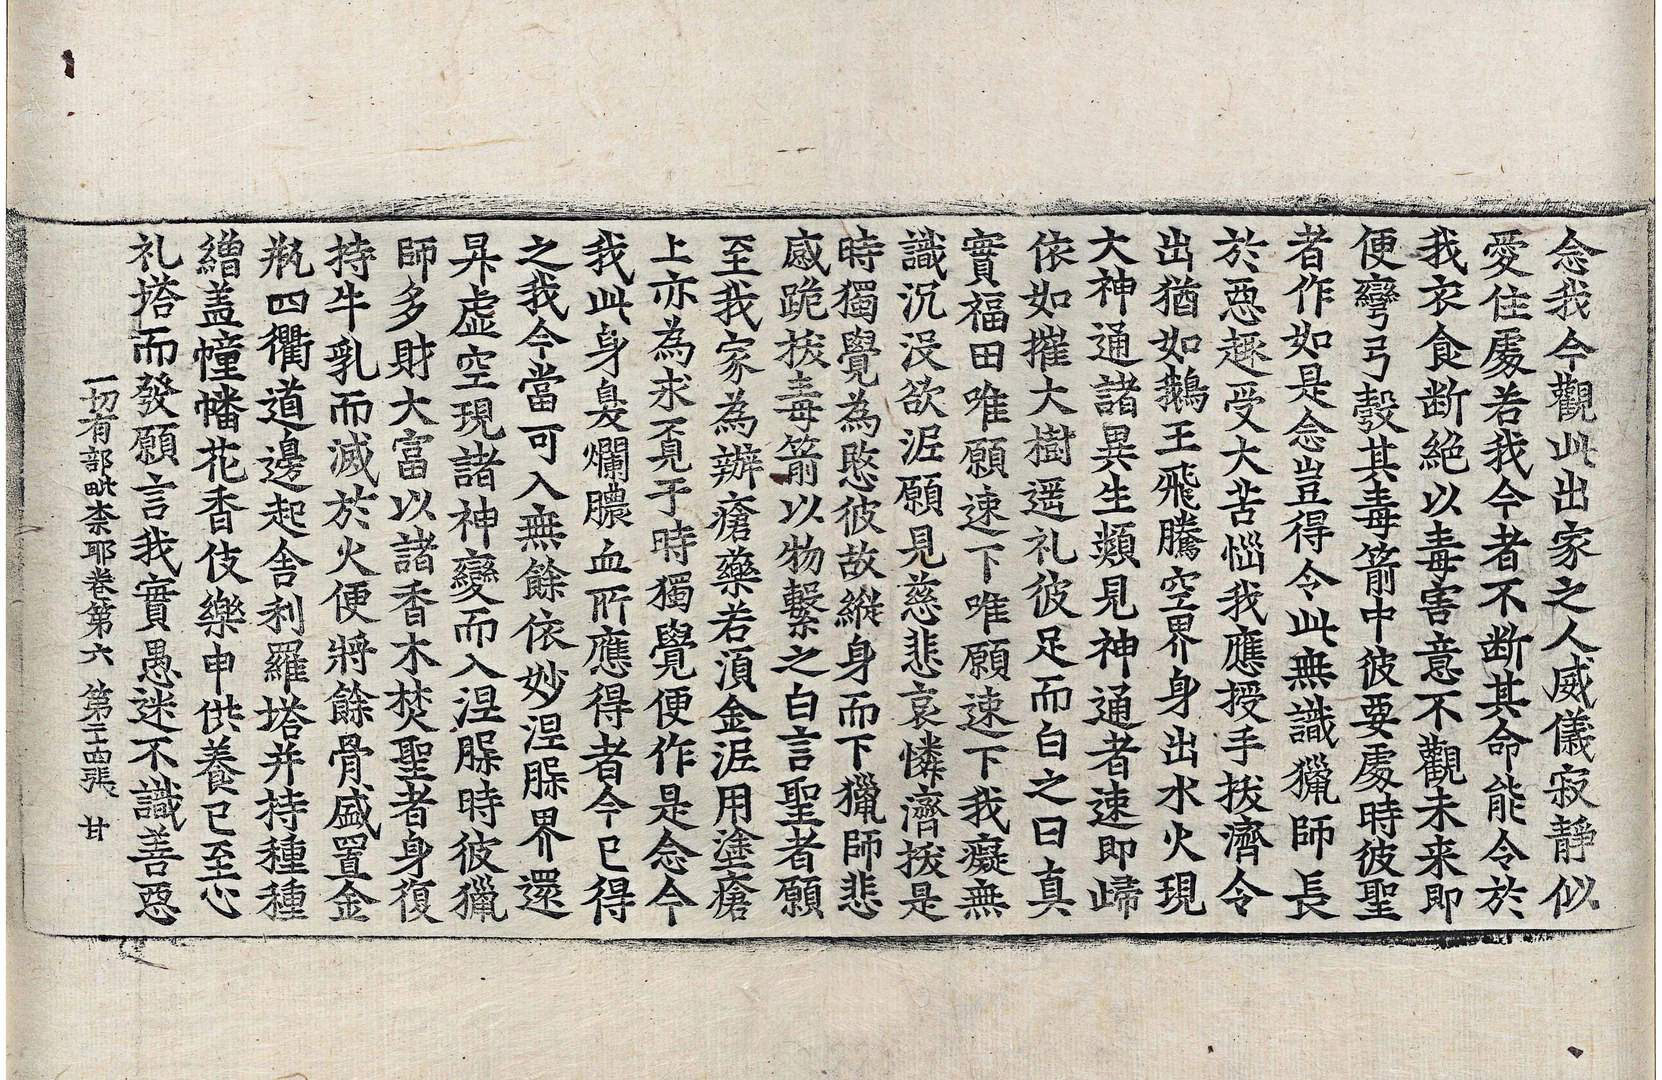 念我今觀此出家之人威儀寂靜似
愛住處若我今者不断其命能令於
我衣食断絕以毒害意不觀未来即
便彎弓彀其毒箭中彼要處時彼聖
者作如是念豈得令此無識獵師長
於惡趣受大苦惱我應授手拔濟令
出猶如鵝王飛騰空界身出水火現
大神通諸異生類見神通者速即歸
依如摧大樹遥礼彼足而白之曰真
實福田唯願速下唯願速下我癡無
識沉没欲泥願見慈悲哀憐濟拔是
時獨覺為愍彼故縱身而下獵師悲
慼跪拔毒箭以物繫之白言聖者願
至我家為辦瘡藥若湏金泥用塗瘡
上亦為求覓于時獨覺便作是念今
我此身臭爛膿血所應得者今已得
之我今當可入無餘依妙涅槃界還
昇虛空現諸神變而入涅槃時彼獵
師多財大富以諸香木焚聖者身復
持牛乳而滅於火便將餘骨盛置金
瓶四衢道邊起舍利羅塔并持種種
繒盖幢幡花香伎樂申供養已至心
礼塔而發願言我實愚迷不識善惡
一切有部毗柰耶卷第六 第二十四張 甘